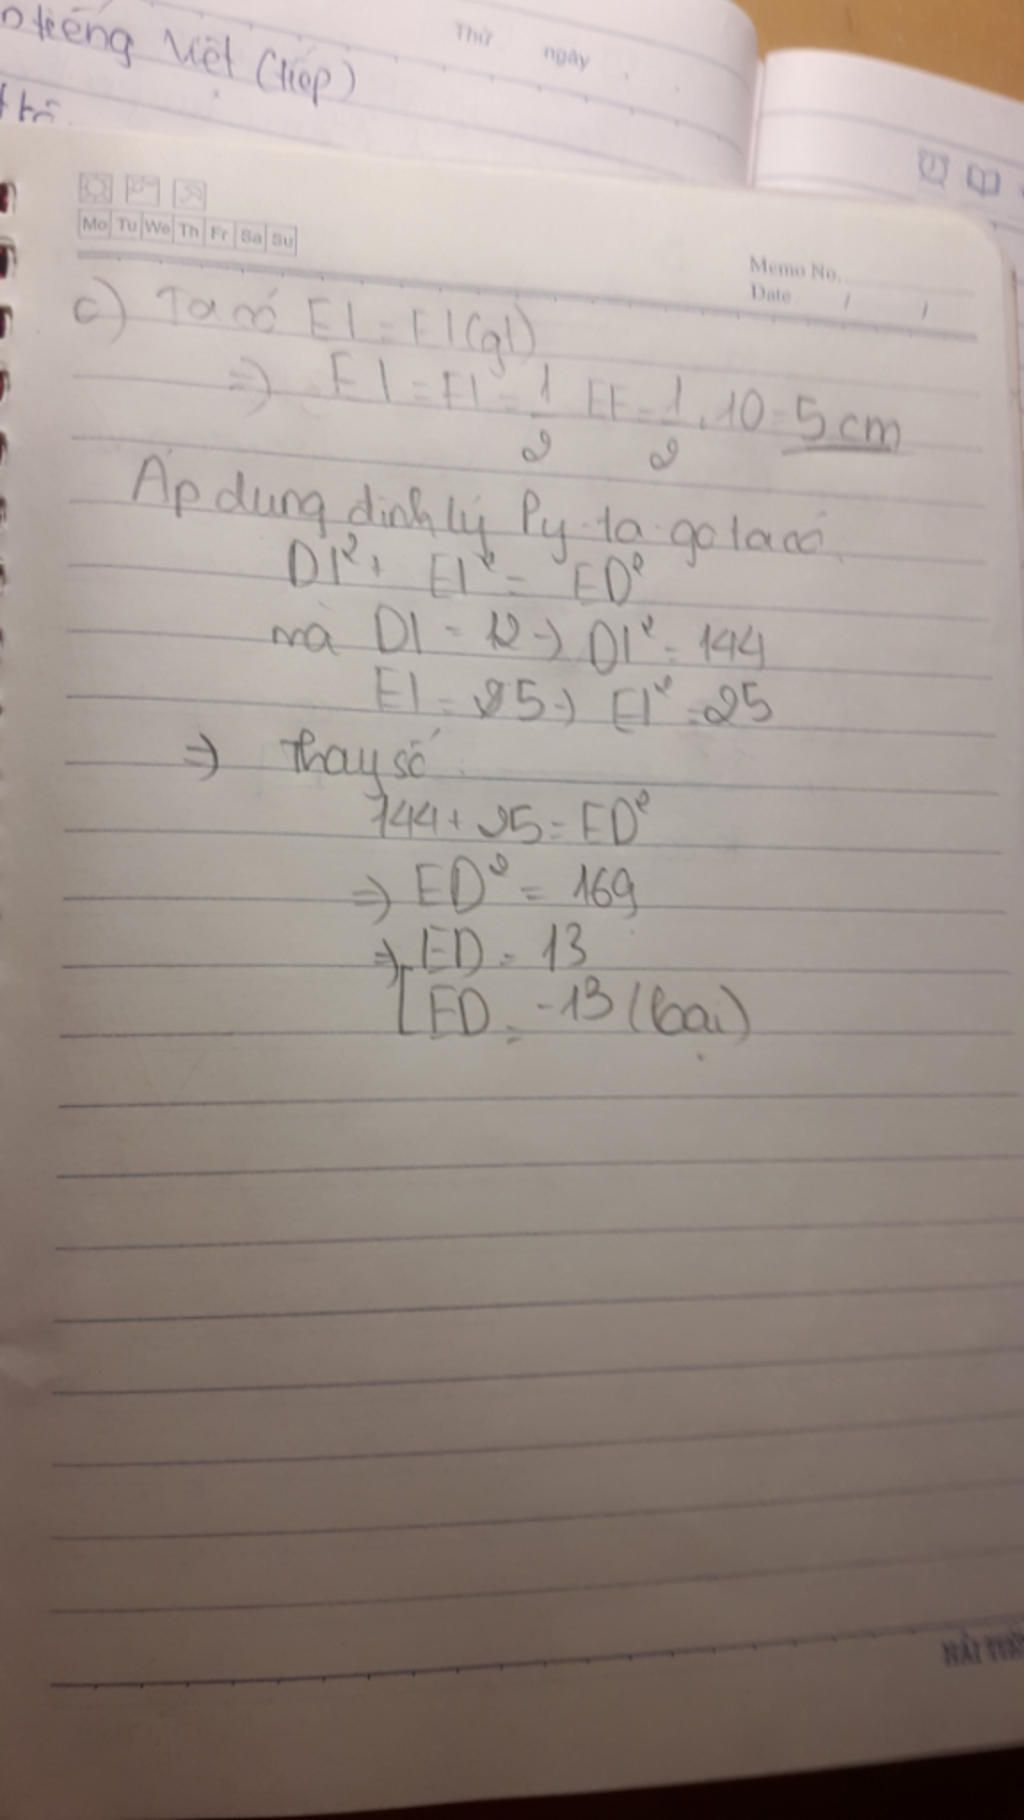 tiếng Việt (tiếp)
Thứ ngày
Mo Tu We Th Fr Sa Su
Memo No.
Date / /
c) Ta có EI = FI (gt)
=> EI = FI = 1/2 EF = 1/2 . 10 = 5 cm
Áp dụng định lý Py-ta-go ta có
DI² + EI² = ED²
mà DI = 12 => DI² = 144
EI = 25 => EI² = 25
=> Thay số
144 + 25 = ED²
=> ED² = 169
=> [ ED = 13
ED = -13 (loại)